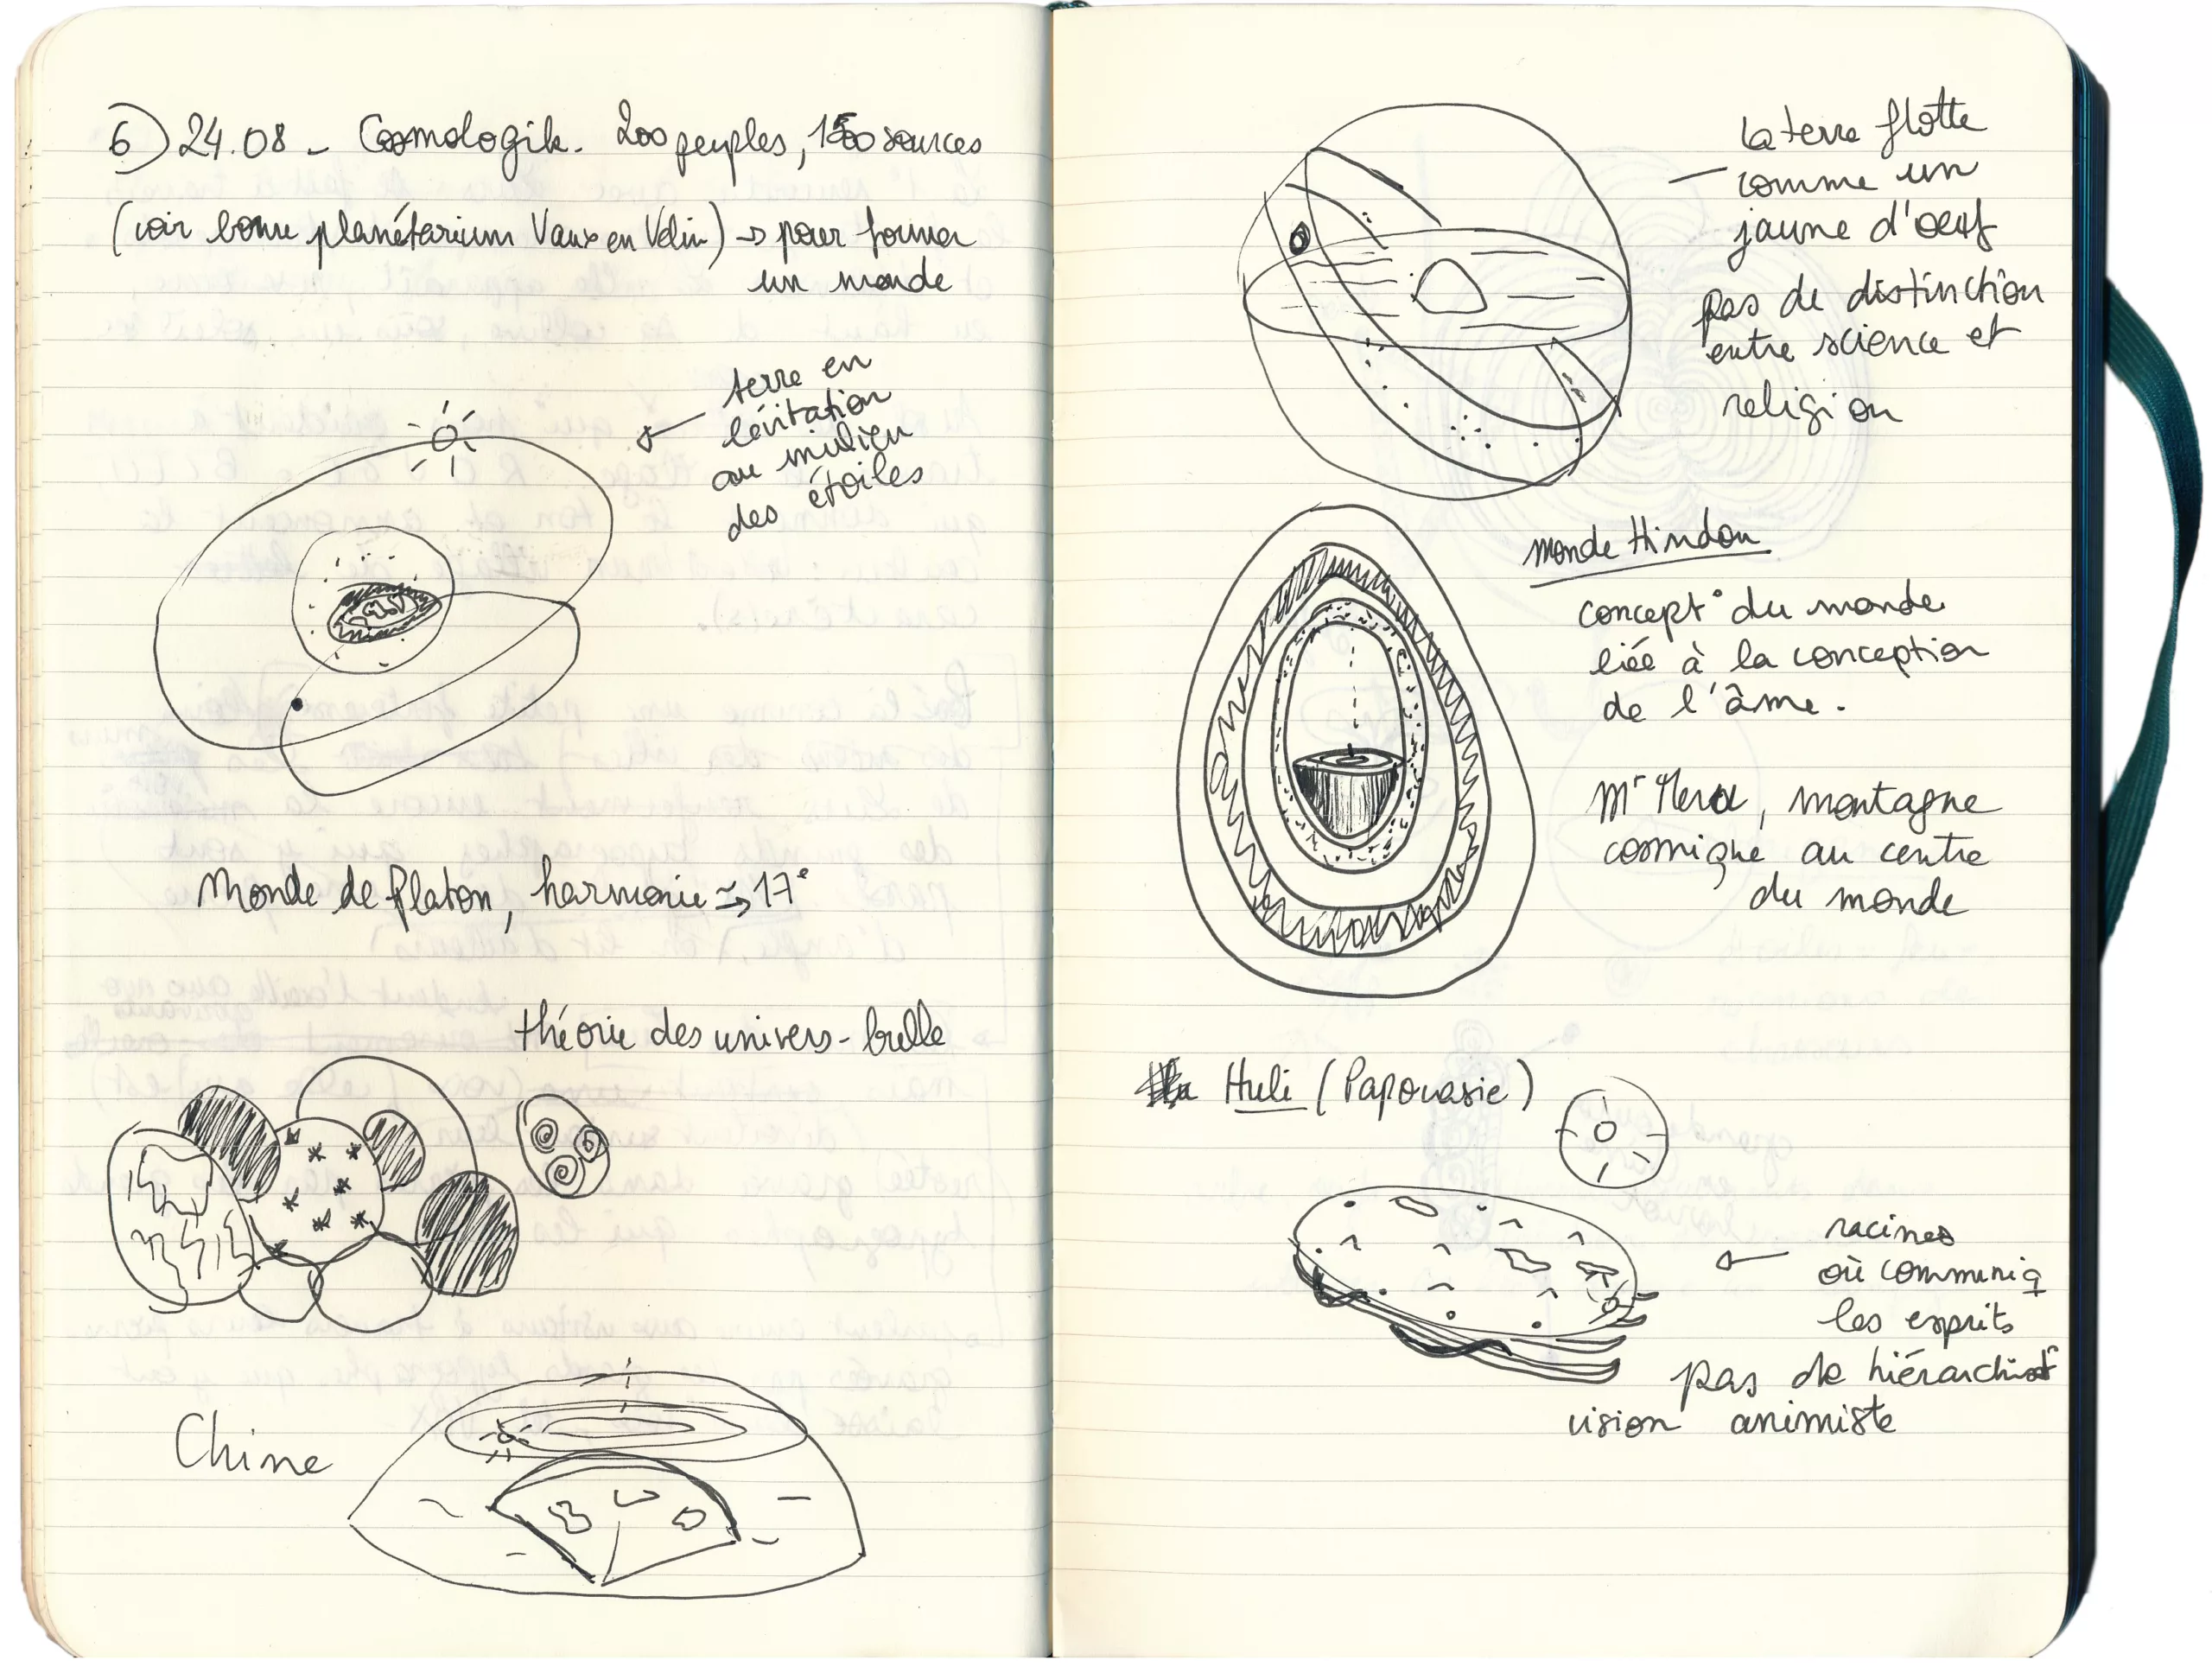 6) 24.08 - Cosmologik. 200 peuples, 150 sources
(voir planétarium Vaux en Velin) → pour former
un monde
terre en
lévitation
au milieu
des étoiles
Monde de Platon, harmonie → 17e
théorie des univers-bulle
Chine
la terre flotte
comme un
jaune d'oeuf
pas de distinction
entre science et
religion
monde Hindou
concept° du monde
liée à la conception
de l'âme.
Mt Meru, montagne
cosmique au centre
du monde
Huli (Papouasie)
racines
où communiq
les esprits
pas de
vision animiste